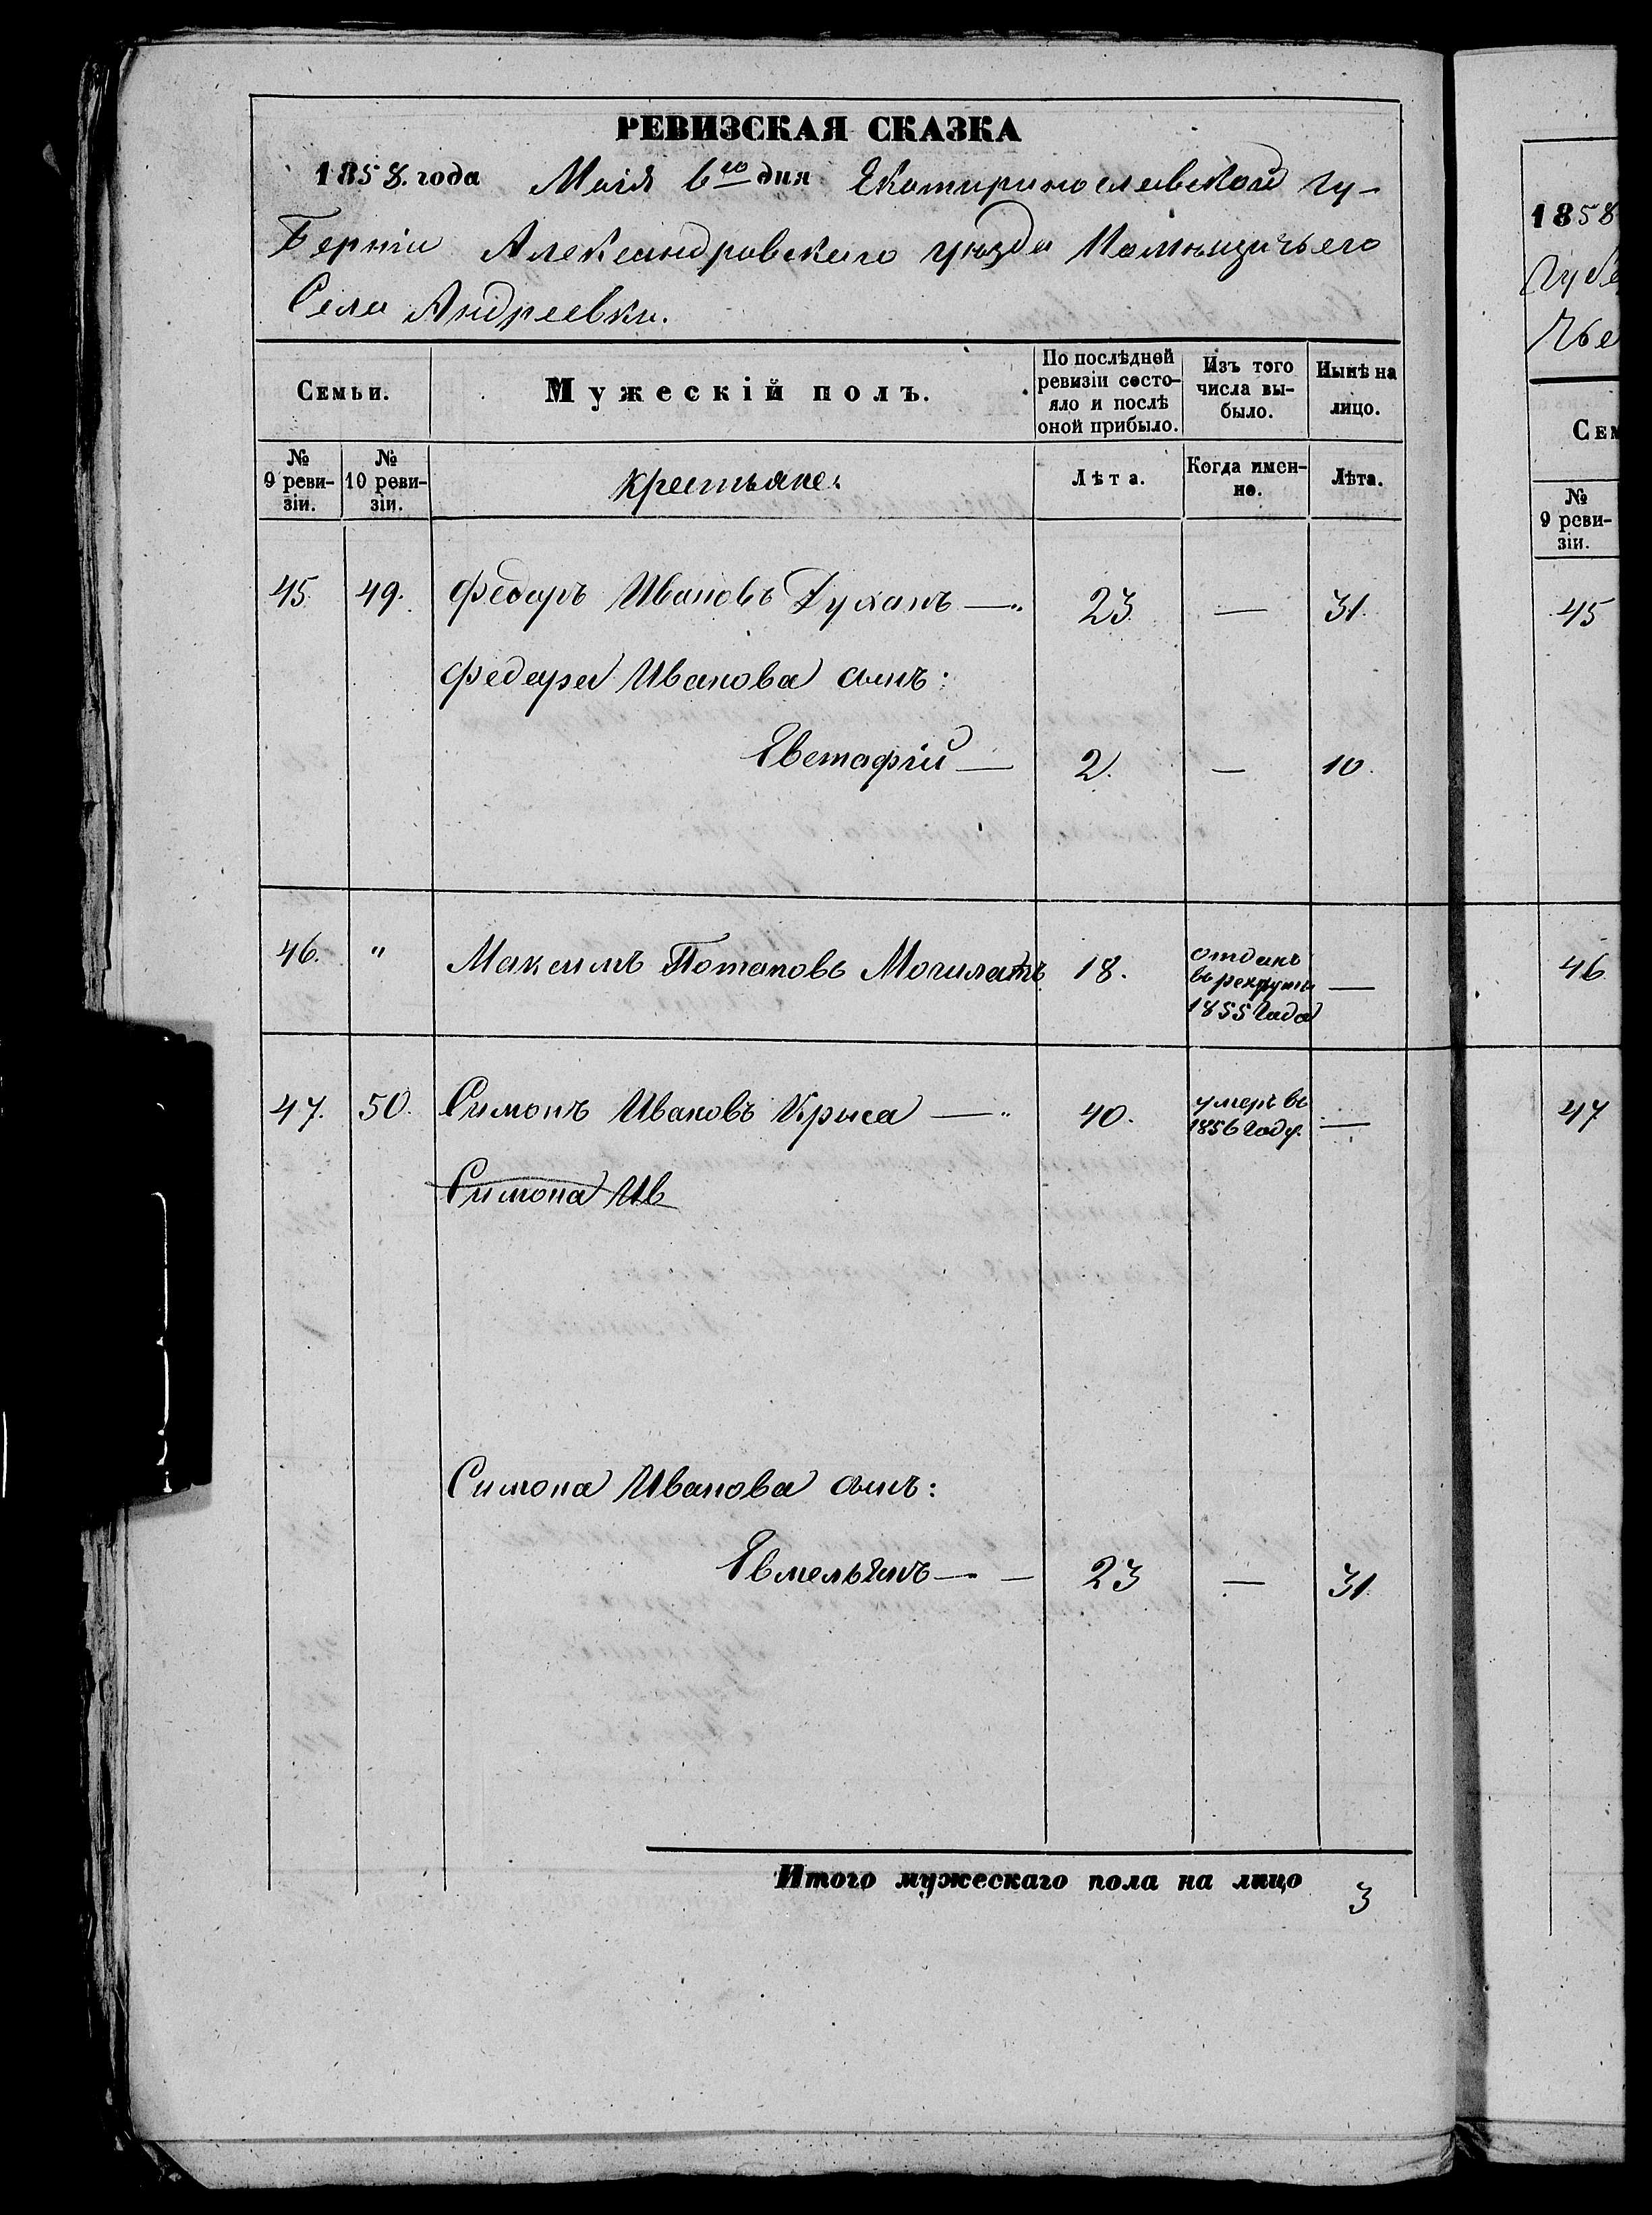 РЕВИЗСКАЯ СКАЗКА
1858. года Маія 6го дня Екатиринославской гу-
берніи Александровскаго уѣзда Помѣщичьего
Села Андреевки.
Семьи.
Мужескій полъ.
По послѣдней ревизіи состо-
яло и послѣ оной прибыло.
Изъ того числа вы-
было.
Нынѣ на лицо.
№ 9 реви-
зіи.
№ 10 реви-
зіи.
крестьяне:
Лѣта.
Когда имен-
но.
Лѣта.
45. 49. Федоръ Ивановъ Духанъ — 23. — 31.
Федора Ивановa сынъ:
Евстафій — 2. — 10.
46. " Максимъ Потаповъ 18. отданъ —
въ рекруты
1855 Года
47. 50. Симонъ Ивановъ Крыса — 40. умеръ въ —
1856 Году.
Симона Ив
Симона Иванова сынъ:
Емельянъ — — 23 — 31.
Итого мужескаго пола на лицо 3
1858
Губе
чье
Сем
№
9 реви-
зіи.
45
46
47